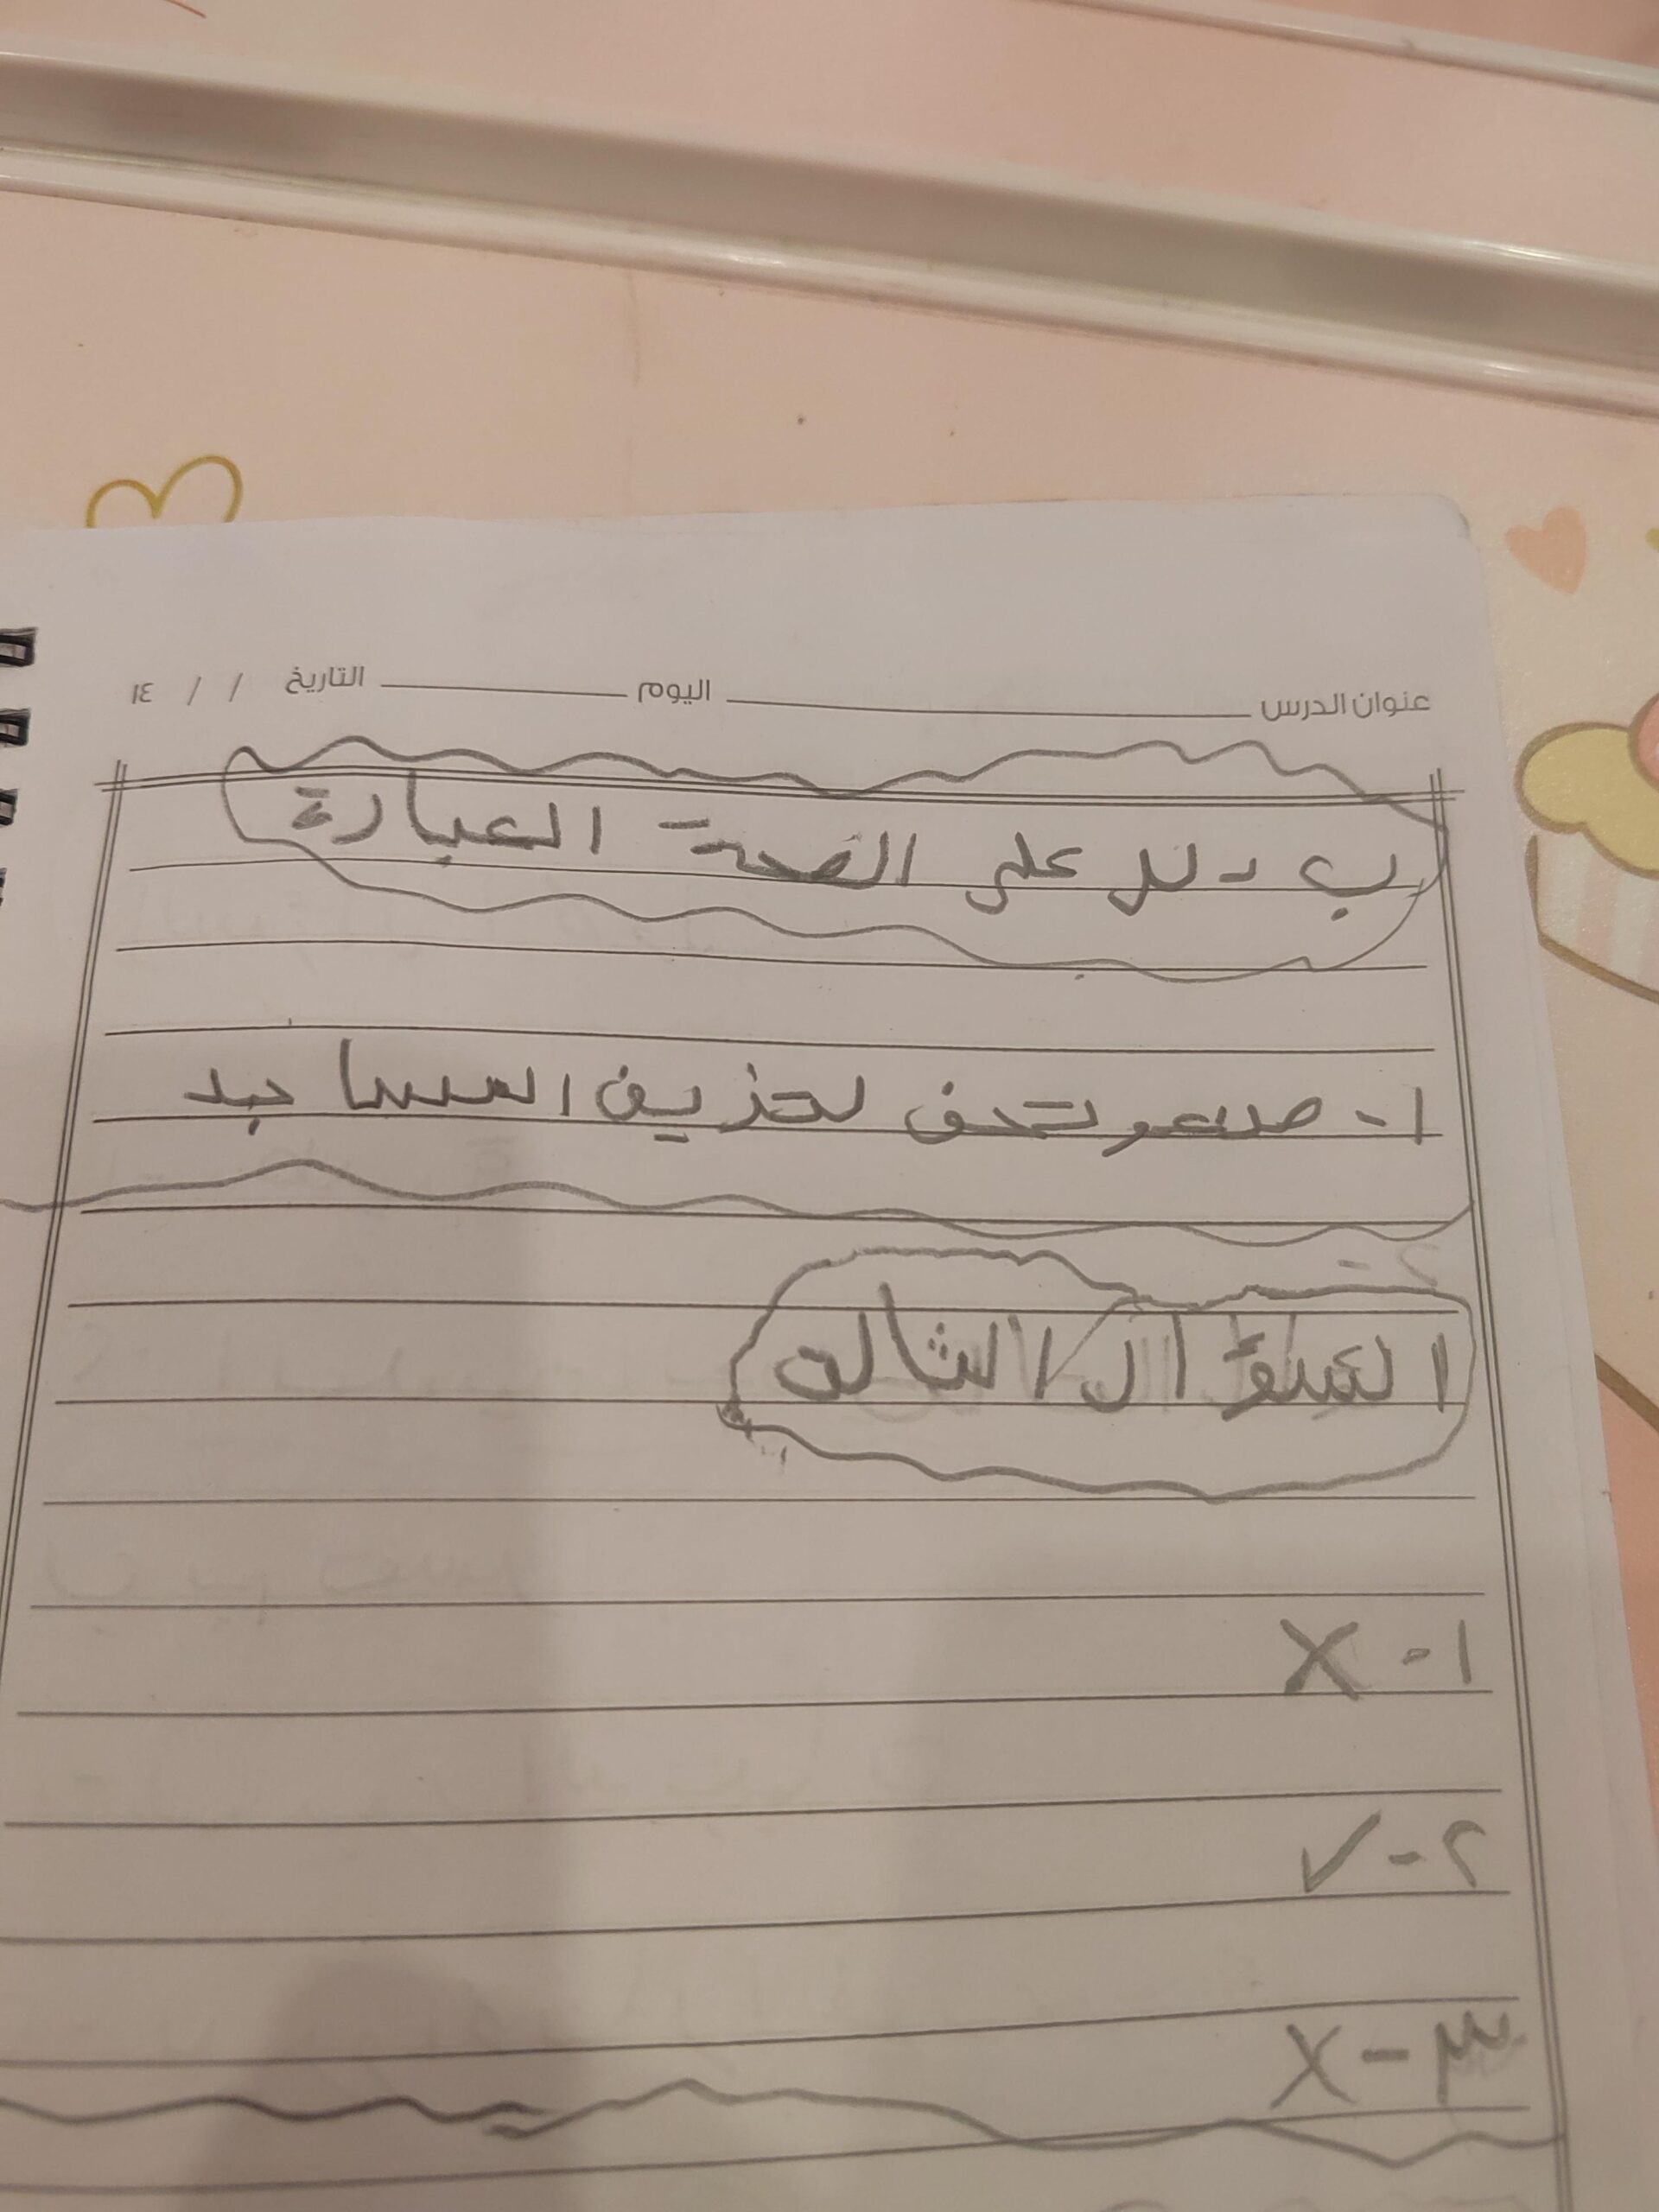 عنوان الدرس اليوم التاريخ / / ١٤
ب دلل على الصحة العبارة
١- صنعو تحف لتزين المسا جد
السؤال الثالث
١- X
٢- ✓
٣- X